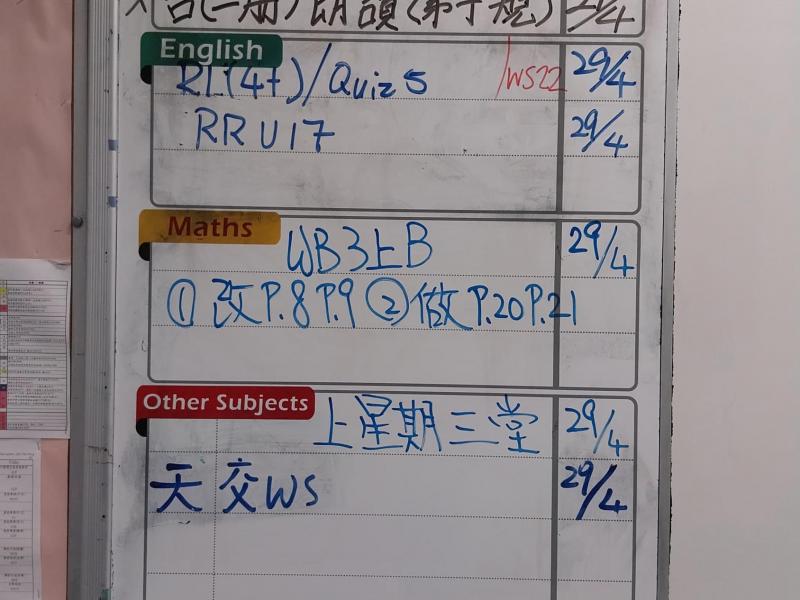 (一册)朗讀(弟子規) 29/4
English
RL(4+)/Quiz 5 /WS22 29/4
RR U17 29/4
Maths
WB3上B 29/4
① 改P.8 P.9 ② 做P.20 P.21
Other Subjects
上星期三堂 29/4
天 交WS 29/4